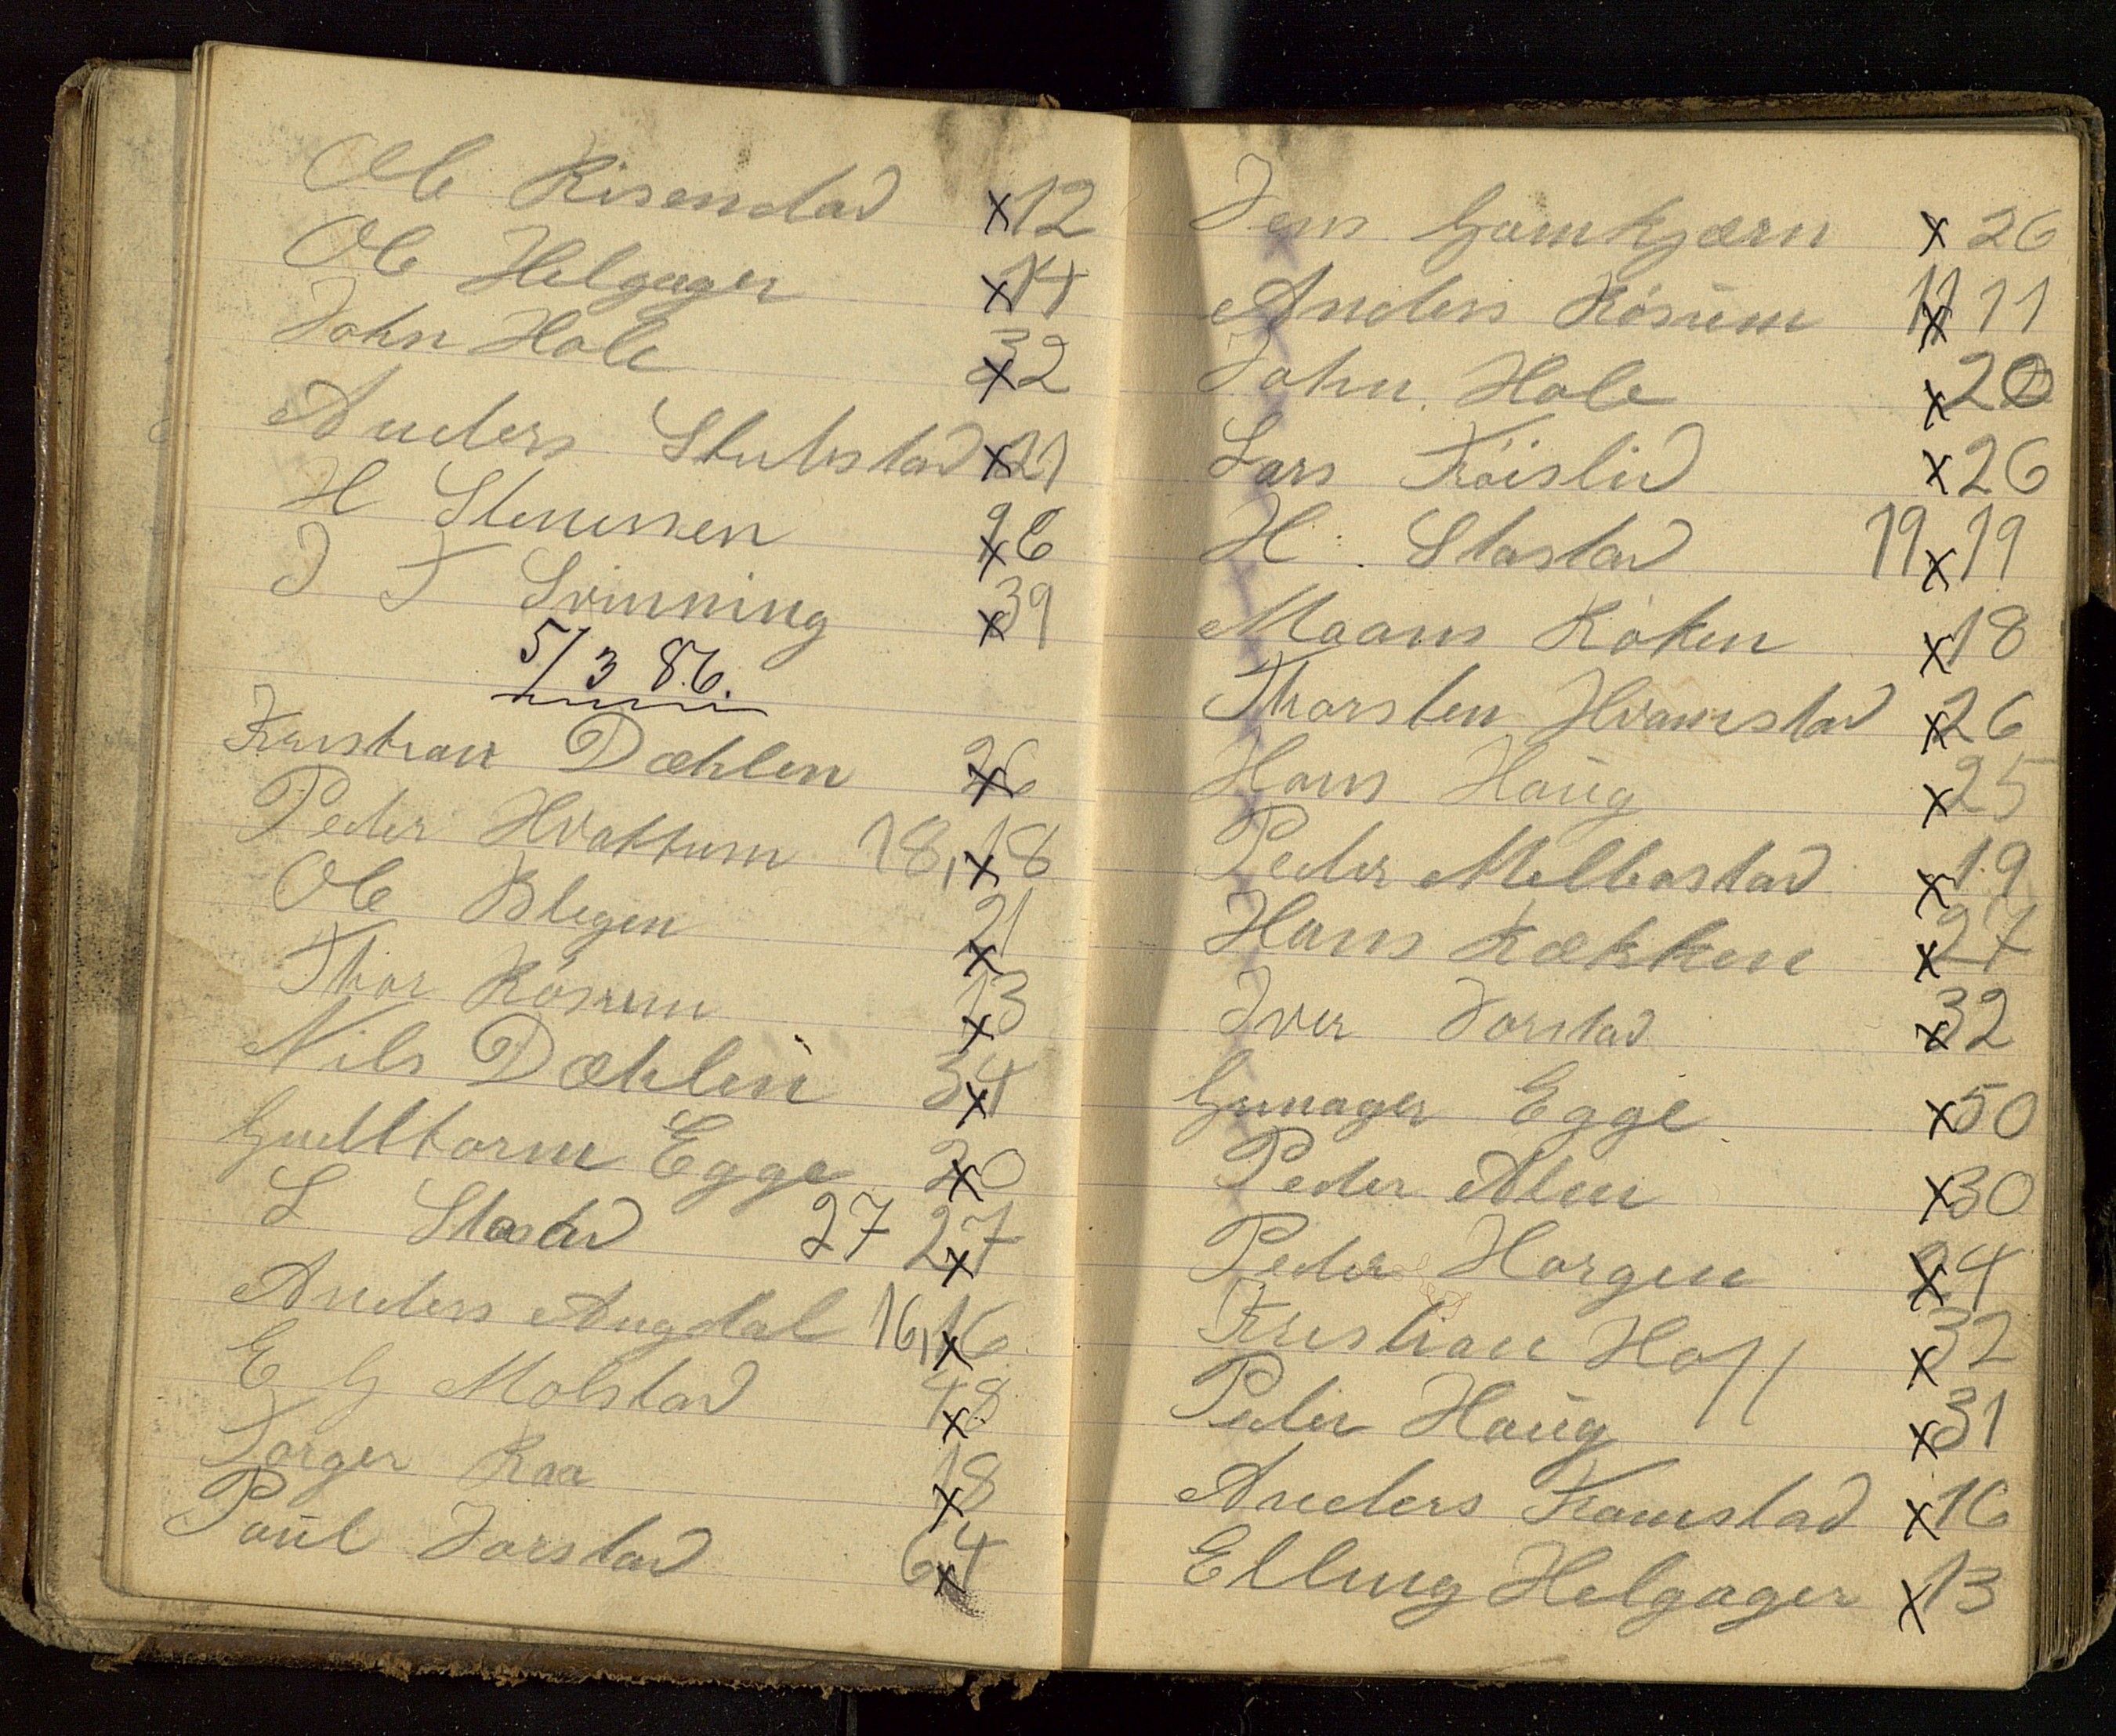 Ole Risenstad x 12
Ole Helgager x 14
John Hole x 32
Anders Stubstad x 21
H Stenersen x 26
J T Svinning x 39
5/3 86.
Kristian Dæhlen x 26
Peder Hvattum 18, x 18
Ole Blegen x 21
Thor Rösum x 13
Nils Dæhlin x 34
Gudttorm Egge x 20
L Stastad 27 x 27
Anders Augdal 16, x 16
E G Molstad x 48
Torger Raa x 18
Paul Jorstad x 64
Jens Gamkjærn x 26
Anders Rösum 11 x 11
John Hole x 20
Lars Tröislid x 26
H. Stastad 19 x 19
Maans Röken x 18
Thorsten Hvamstad x 26
Hans Haug x 25
Peder Melbostad x 19
Hans Rækken x 27
Iver Jorstad x 32
Gunager Egge x 50
Peder Alm x 30
Peder Horgen x 24
Kristian Hoff x 32
Peder Haug x 31
Anders Framstad x 16
Elling Helgager x 13